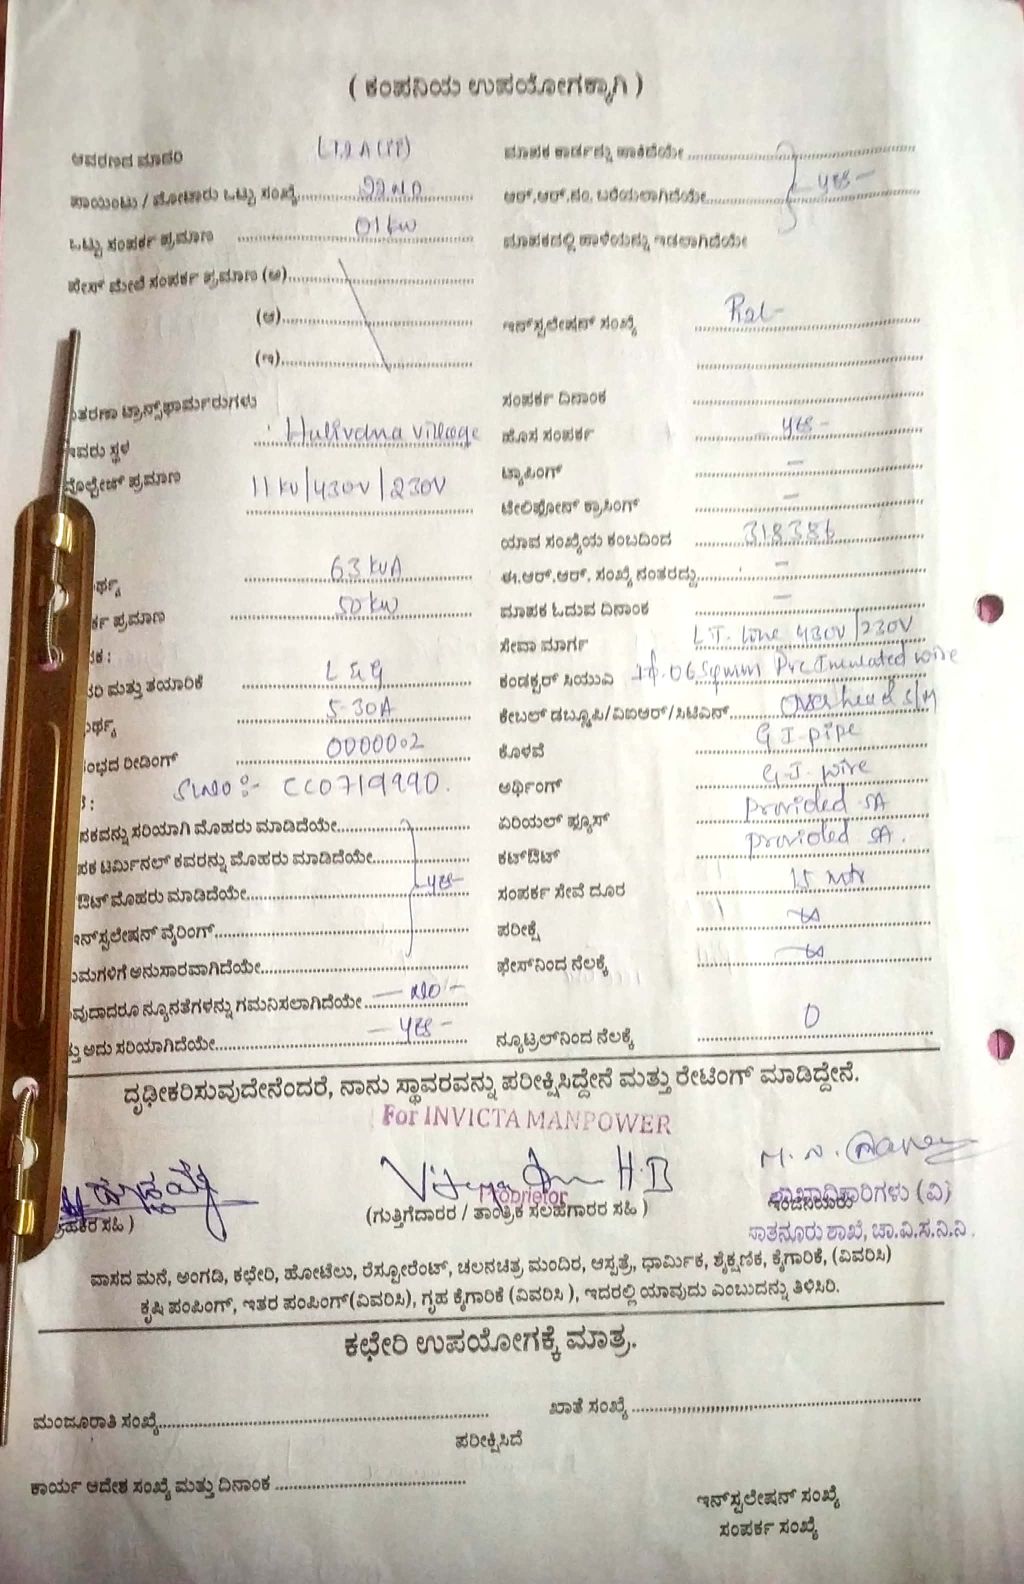 ( ಕಂಪನಿಯ ಉಪಯೋಗಕ್ಕಾಗಿ )
ಆವರಣದ ಮಾದರಿ
ಮಾಪಕ ಕಾರ್ಡನ್ನು ಹಾಕಿದೆಯೇ
ಪಾಯಿಂಟು / ಮೋಟಾರು ಒಟ್ಟು ಸಂಖ್ಯೆ
ಆರ್.ಆರ್.ನಂ. ಬರೆಯಲಾಗಿದೆಯೇ yes
ಒಟ್ಟು ಸಂಪರ್ಕ ಪ್ರಮಾಣ 01 kW
ಮಾಪಕದಲ್ಲಿ ಹಾಳೆಯನ್ನು ಇಡಲಾಗಿದೆಯೇ
ಫೇಸ್ ಮೇಲೆ ಸಂಪರ್ಕ ಪ್ರಮಾಣ (ಅ)
(ಆ)
ಇನ್‌ಸ್ಟಲೇಷನ್ ಸಂಖ್ಯೆ
(ಇ)
ತರಣಾ ಟ್ರಾನ್ಸ್‌ಫಾರ್ಮರುಗಳು
ಸಂಪರ್ಕ ದಿನಾಂಕ
ಇವರು ಸ್ಥಳ Hulivana village
ಹೊಸ ಸಂಪರ್ಕ - yes -
ವೋಲ್ಟೇಜ್ ಪ್ರಮಾಣ 11 kV/430V/230V
ಟ್ಯಾಪಿಂಗ್ -
ಟೆಲಿಫೋನ್ ಕ್ರಾಸಿಂಗ್ -
ಯಾವ ಸಂಖ್ಯೆಯ ಕಂಬದಿಂದ 318386
ರ್ಥ್ಯ 63 kVA
ಈ.ಆರ್.ಆರ್. ಸಂಖ್ಯೆ ನಂತರದ್ದು -
ರ್ಕ ಪ್ರಮಾಣ 50 kW
ಮಾಪಕ ಓದುವ ದಿನಾಂಕ -
ಕ :
ಸೇವಾ ಮಾರ್ಗ L.T. Line 430V/230V
ರಿ ಮತ್ತು ತಯಾರಿಕೆ L & G
ಕಂಡಕ್ಟರ್ ಸಿಯುವಿ 06 Sqmm Pvc Insulated wire
ರ್ಥ್ಯ 5-30A
ಕೇಬಲ್ ಡಬ್ಲ್ಯೂಪಿ/ವಿಐಆರ್/ಸಿಟಿಎಸ್ Over head S/M
ಂಭದ ರೀಡಿಂಗ್ 0000002
ಕೊಳವೆ G I pipe
Sl No :- CC0719990.
ಅರ್ಥಿಂಗ್ G.I. wire
ಪಕವನ್ನು ಸರಿಯಾಗಿ ಮೊಹರು ಮಾಡಿದೆಯೇ
ಏರಿಯಲ್ ಫ್ಯೂಸ್ provided 5A
ಪಕ ಟರ್ಮಿನಲ್ ಕವರನ್ನು ಮೊಹರು ಮಾಡಿದೆಯೇ
ಕಟ್‌ಔಟ್ provided 5A.
ಔಟ್ ಮೊಹರು ಮಾಡಿದೆಯೇ yes
ಸಂಪರ್ಕ ಸೇವೆ ದೂರ 15 mtr
ಇನ್‌ಸ್ಟಲೇಷನ್ ವೈರಿಂಗ್
ಪರೀಕ್ಷೆ
ಯಮಗಳಿಗೆ ಅನುಸಾರವಾಗಿದೆಯೇ
ಫೇಸ್‌ನಿಂದ ನೆಲಕ್ಕೆ
ವುದಾದರೂ ನ್ಯೂನತೆಗಳನ್ನು ಗಮನಿಸಲಾಗಿದೆಯೇ - NO -
ತ್ತು ಅದು ಸರಿಯಾಗಿದೆಯೇ - yes -
ನ್ಯೂಟ್ರಲ್‌ನಿಂದ ನೆಲಕ್ಕೆ 0
ದೃಢೀಕರಿಸುವುದೇನೆಂದರೆ, ನಾನು ಸ್ಥಾವರವನ್ನು ಪರೀಕ್ಷಿಸಿದ್ದೇನೆ ಮತ್ತು ರೇಟಿಂಗ್ ಮಾಡಿದ್ದೇನೆ.
For INVICTA MANPOWER
Proprietor
ಗ್ರಾಹಕರ ಸಹಿ )
(ಗುತ್ತಿಗೆದಾರರ / ತಾಂತ್ರಿಕ ಸಲಹಾಗಾರರ ಸಹಿ )
ಶಾಖಾಧಿಕಾರಿಗಳು (ವಿ)
ಸಾತನೂರು ಶಾಖೆ, ಚಾ.ವಿ.ಸ.ನಿ.ನಿ.
ವಾಸದ ಮನೆ, ಅಂಗಡಿ, ಕಛೇರಿ, ಹೋಟೆಲು, ರೆಸ್ಟೋರೆಂಟ್, ಚಲನಚಿತ್ರ ಮಂದಿರ, ಆಸ್ಪತ್ರೆ, ಧಾರ್ಮಿಕ, ಶೈಕ್ಷಣಿಕ, ಕೈಗಾರಿಕೆ, (ವಿವರಿಸಿ)
ಕೃಷಿ ಪಂಪಿಂಗ್, ಇತರ ಪಂಪಿಂಗ್(ವಿವರಿಸಿ), ಗೃಹ ಕೈಗಾರಿಕೆ (ವಿವರಿಸಿ ), ಇದರಲ್ಲಿ ಯಾವುದು ಎಂಬುದನ್ನು ತಿಳಿಸಿರಿ.
ಕಛೇರಿ ಉಪಯೋಗಕ್ಕೆ ಮಾತ್ರ.
ಮಂಜೂರಾತಿ ಸಂಖ್ಯೆ
ಖಾತೆ ಸಂಖ್ಯೆ
ಪರೀಕ್ಷಿಸಿದೆ
ಕಾರ್ಯ ಆದೇಶ ಸಂಖ್ಯೆ ಮತ್ತು ದಿನಾಂಕ
ಇನ್‌ಸ್ಟಲೇಷನ್ ಸಂಖ್ಯೆ
ಸಂಪರ್ಕ ಸಂಖ್ಯೆ